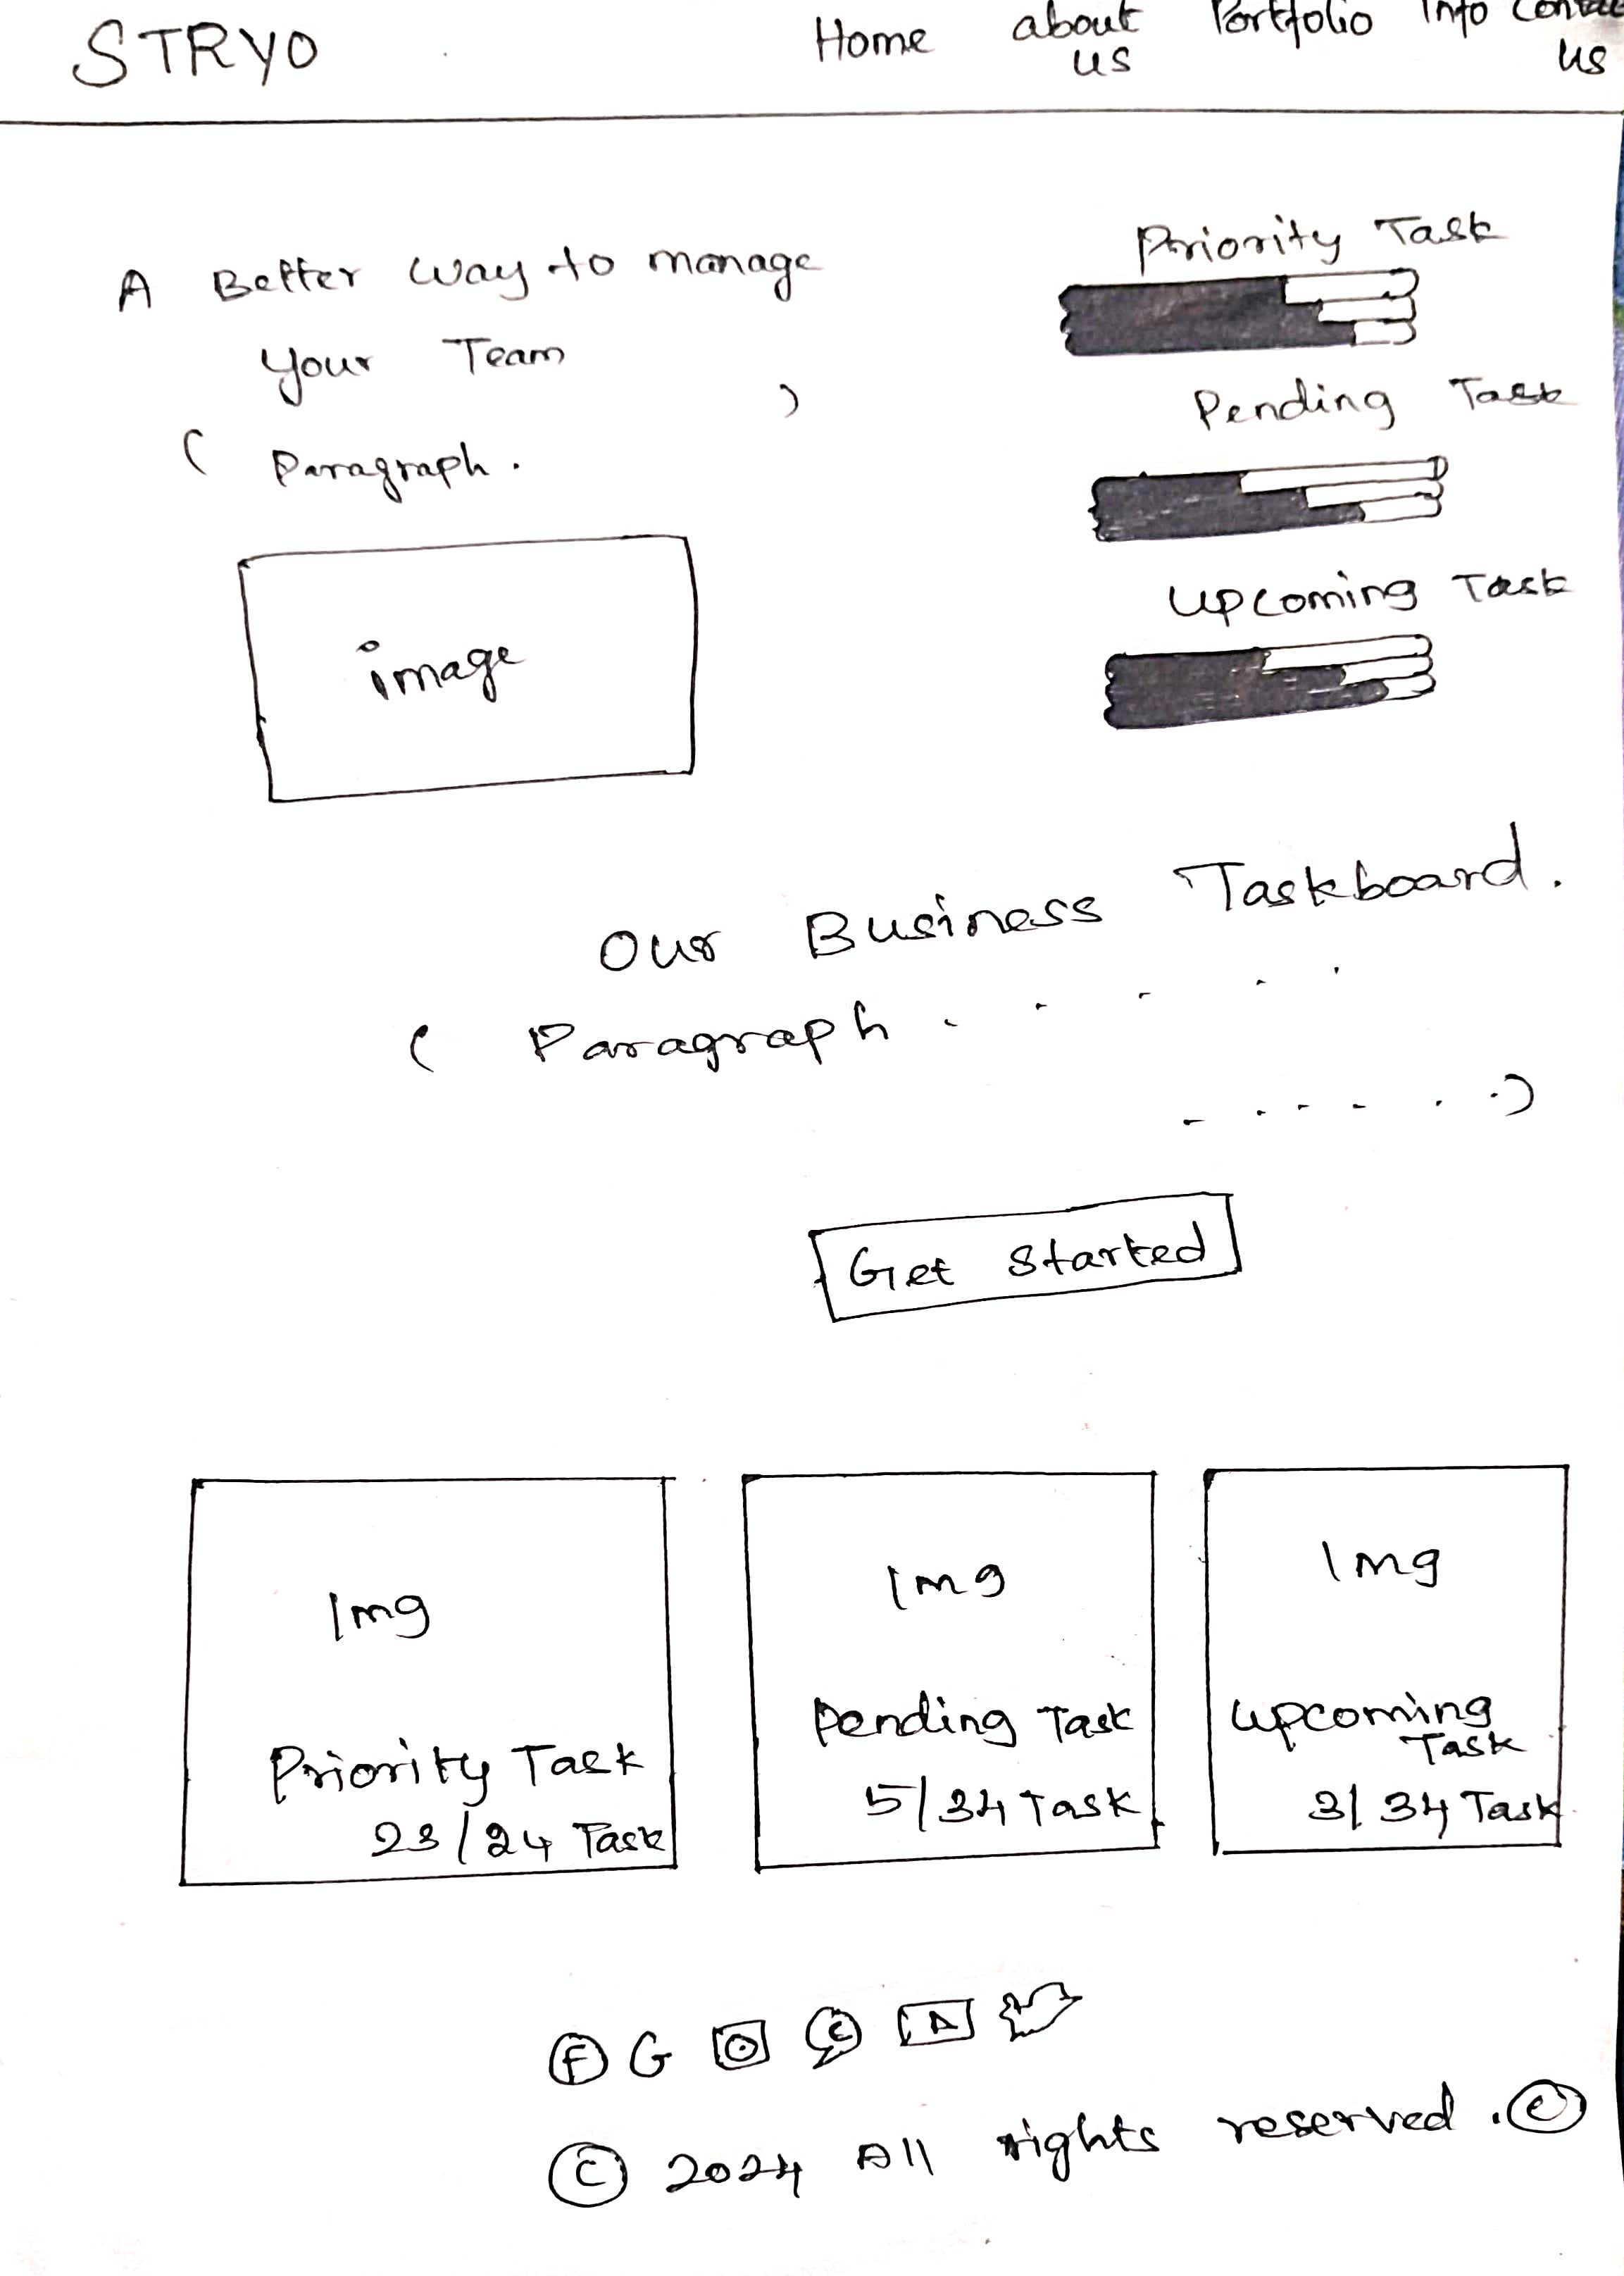 STRYO
Home about us Portfolio Info Contact us
A Better way to manage
your Team
( Paragraph. )
image
Priority Task
Pending Task
Upcoming Task
Our Business Taskboard.
( Paragraph . . . . .
. . . . . .)
Get Started
Img
Priority Task
23/24 Task
Img
Pending Task
5/34 Task
Img
Upcoming
Task
3/34 Task
F G C
© 2024 All rights reserved. ©